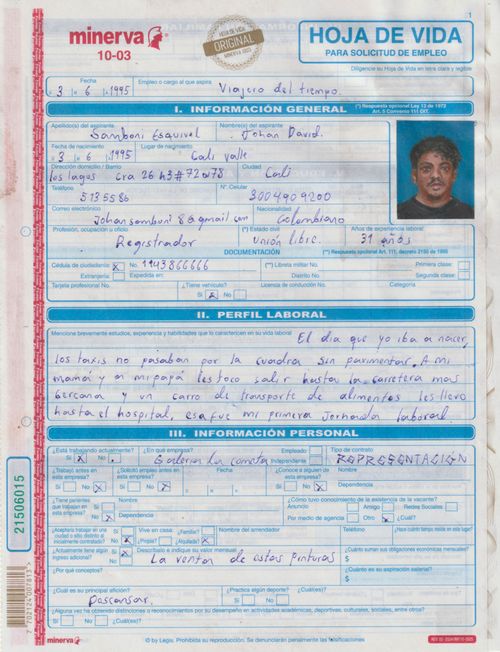 1
minerva
10-03
HOJA DE VIDA
ORIGINAL
MINERVA 2025
HOJA DE VIDA
PARA SOLICITUD DE EMPLEO
Diligencie su Hoja de Vida en letra clara y legible
Fecha
Empleo o cargo al que aspira
3 6 1995 Viajero del tiempo.
I. INFORMACIÓN GENERAL
(*) Respuesta opcional Ley 12 de 1972
Art. 5 Convenio 111 OIT.
Apellido(s) del aspirante Nombre(s) del aspirante
Samboni Esquivel Johan David.
Fecha de nacimiento Lugar de nacimiento
3 6 1995 Cali Valle
Dirección domicilio / Barrio Ciudad
los lagos cra 26 h3 #72w78 Cali
Teléfono N°. Celular
5135586 3004909200
Correo electrónico Nacionalidad
Johansamboni8@gmail.com Colombiano
Profesión, ocupación u oficio (*) Estado civil Años de experiencia laboral
Registrador unión libre. 31 años
DOCUMENTACIÓN
(**) Respuesta opcional Art. 111, decreto 2150 de 1995
Cédula de ciudadanía: x No. 1143866666 (**) Libreta militar No. Primera clase:
Extranjería: Expedida en: Distrito No. Segunda clase:
Tarjeta profesional No. ¿Tiene vehículo? Licencia de conducción No. Categoría
Sí x No
II. PERFIL LABORAL
Mencione brevemente estudios, experiencia y habilidades que lo caractericen en su vida laboral
El dia que yo iba a nacer,
los taxis no pasaban por la cuadra sin pavimentar. A mi
mamá y a mi papá les toco salir hasta la carretera mas
cercana y un carro de transporte de alimentos les llevo
hasta el hospital, esa fue mi primera Jornada laboral
III. INFORMACIÓN PERSONAL
¿Está trabajando actualmente? ¿En qué empresa? Empleado Tipo de contrato
Sí x No Galeria La Cometa Independiente REPRESENTACIÓN
¿Trabajó antes en esta empresa? ¿Solicitó empleo antes en esta empresa? Fecha ¿Conoce a alguien de esta empresa? Nombre
Sí No x Sí No x Sí No x Dependencia
¿Tiene parientes que trabajan en esta empresa? Nombre ¿Cómo tuvo conocimiento de la existencia de la vacante?
Anuncio Amigo Redes Sociales
Sí No x Dependencia Por medio de agencia Otro x ¿Cuál?
¿Aceptaría trabajar en una ciudad o sitio distinto al inicialmente contratado? Vive en casa: ¿Familiar? Nombre del arrendador Teléfono ¿Hace cuánto tiempo reside en este lugar?
Sí No x ¿Propia? ¿Alquilada? x
¿Actualmente tiene algún ingreso adicional? Sí x No Descríbalo e indique su valor mensual ¿Cuánto suman sus obligaciones económicas mensuales?
La venta de estas pinturas $
¿Por qué conceptos? ¿Cuánto es su aspiración salarial?
$
¿Cuál es su principal afición? ¿Practica algún deporte? ¿Cuál(es)?
Descansar. Sí No
¿Alguna vez ha obtenido distinciones o reconocimientos por su desempeño en actividades académicas, deportivas, culturales, sociales, entre otros?
Sí No ¿Cuál(es)?
minerva
© by Legis. Prohibida su reproducción. Se denunciarán penalmente las falsificaciones
21506015